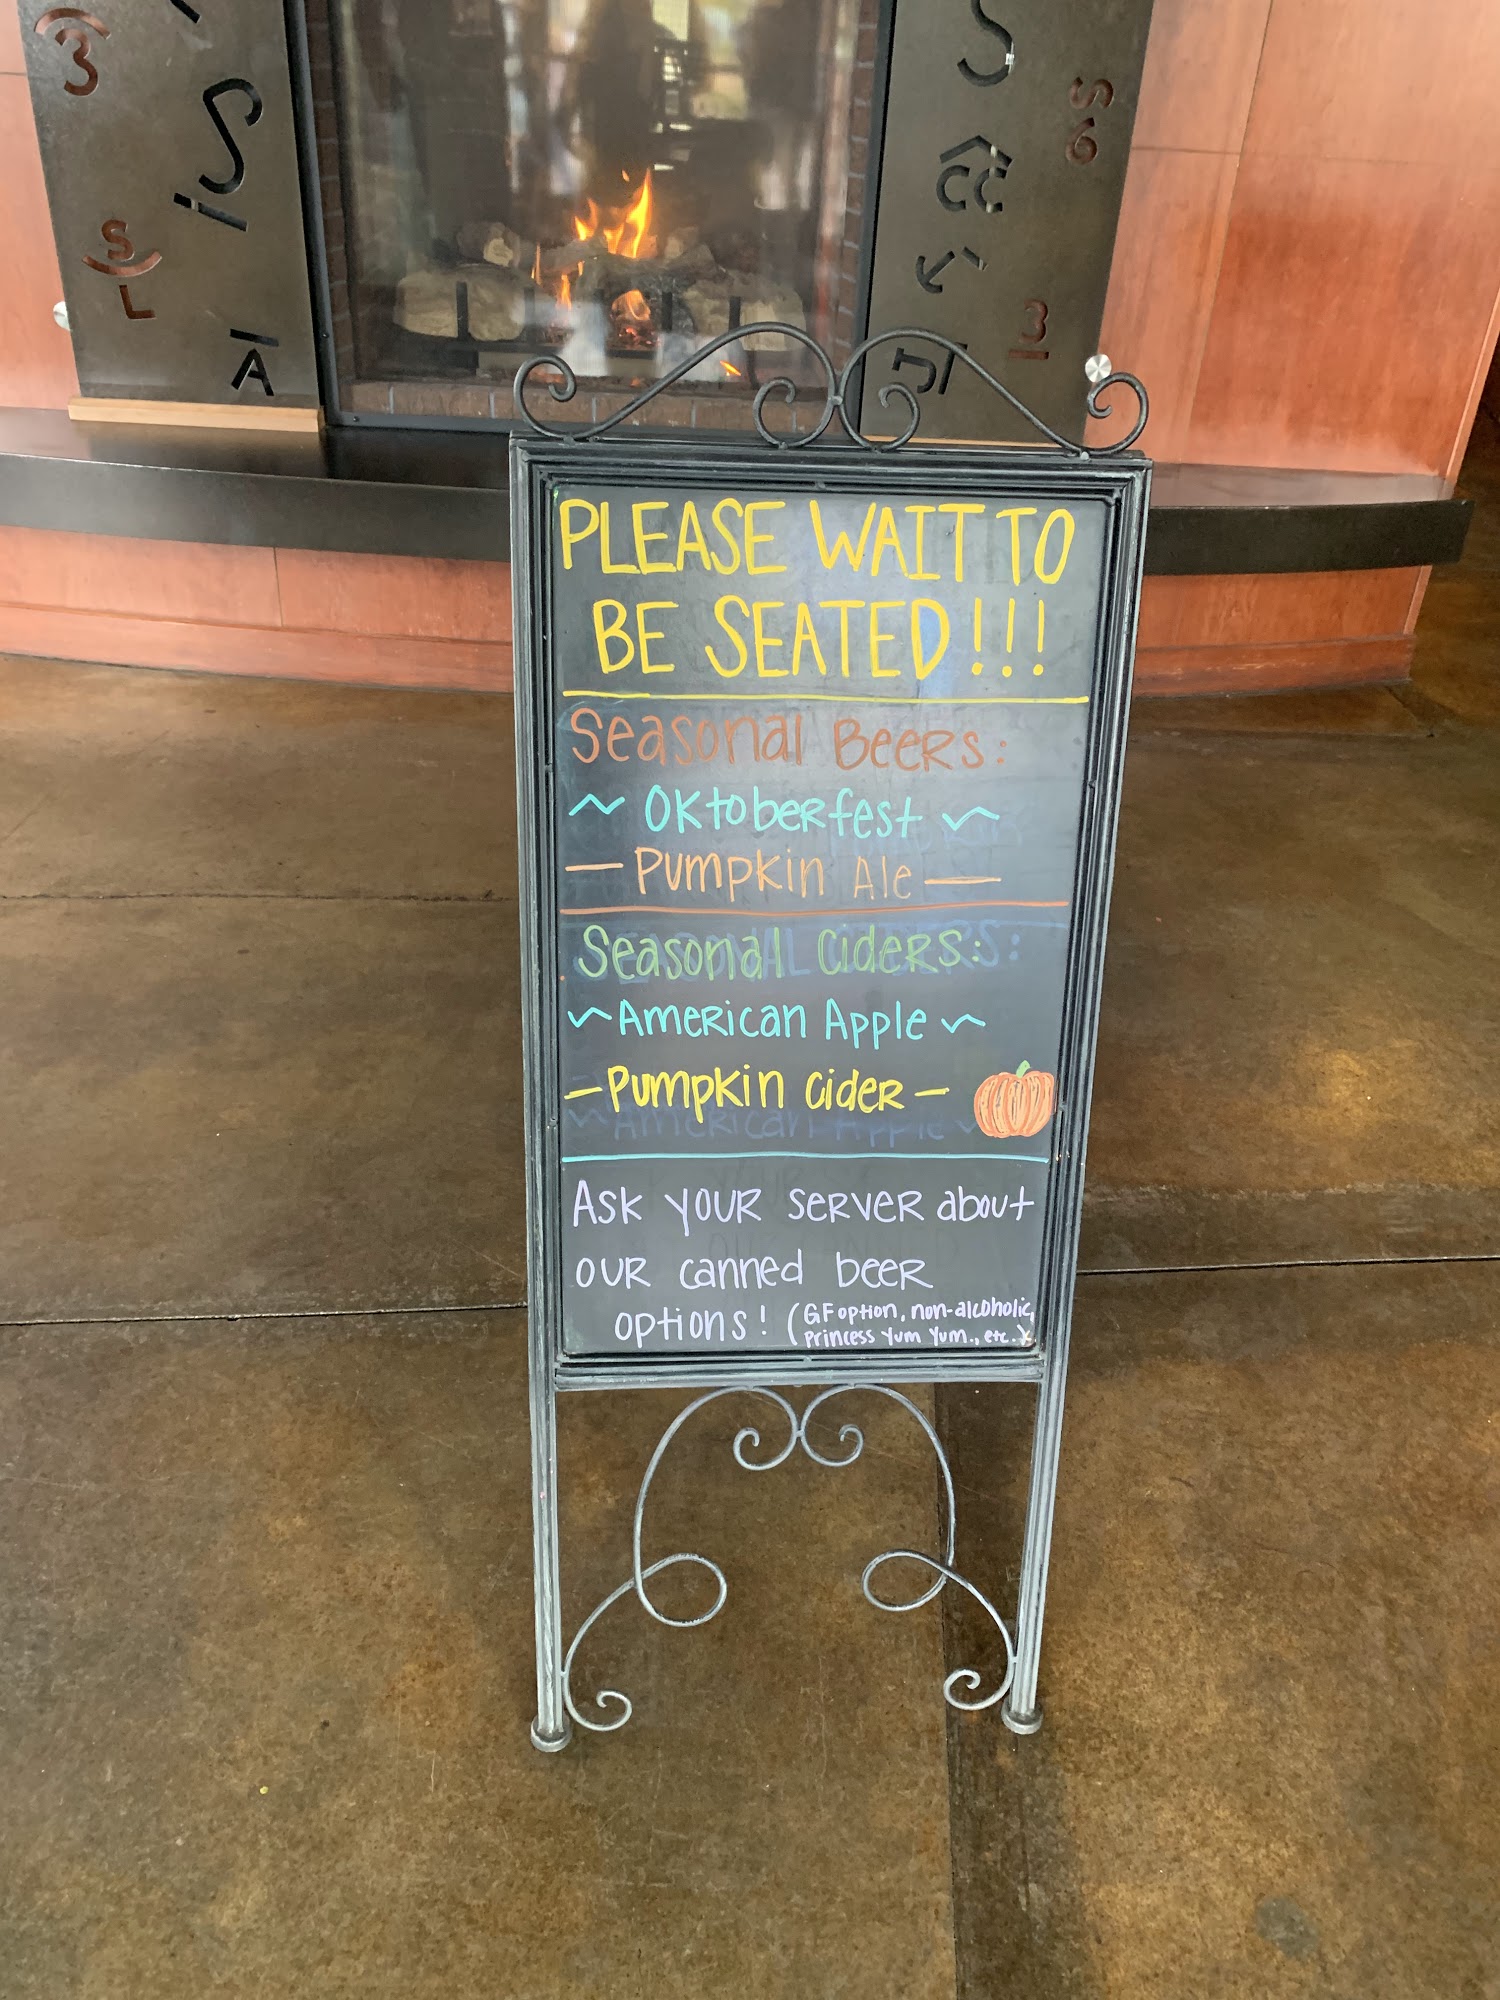 PLEASE WAIT TO
BE SEATED!!!
Seasonal Beers:
~ Oktoberfest ~
— Pumpkin Ale —
Seasonal Ciders:
~ American Apple ~
- Pumpkin Cider -
Ask your server about
our canned beer
options! (GF option, non-alcoholic,
Princess Yum Yum., etc.)